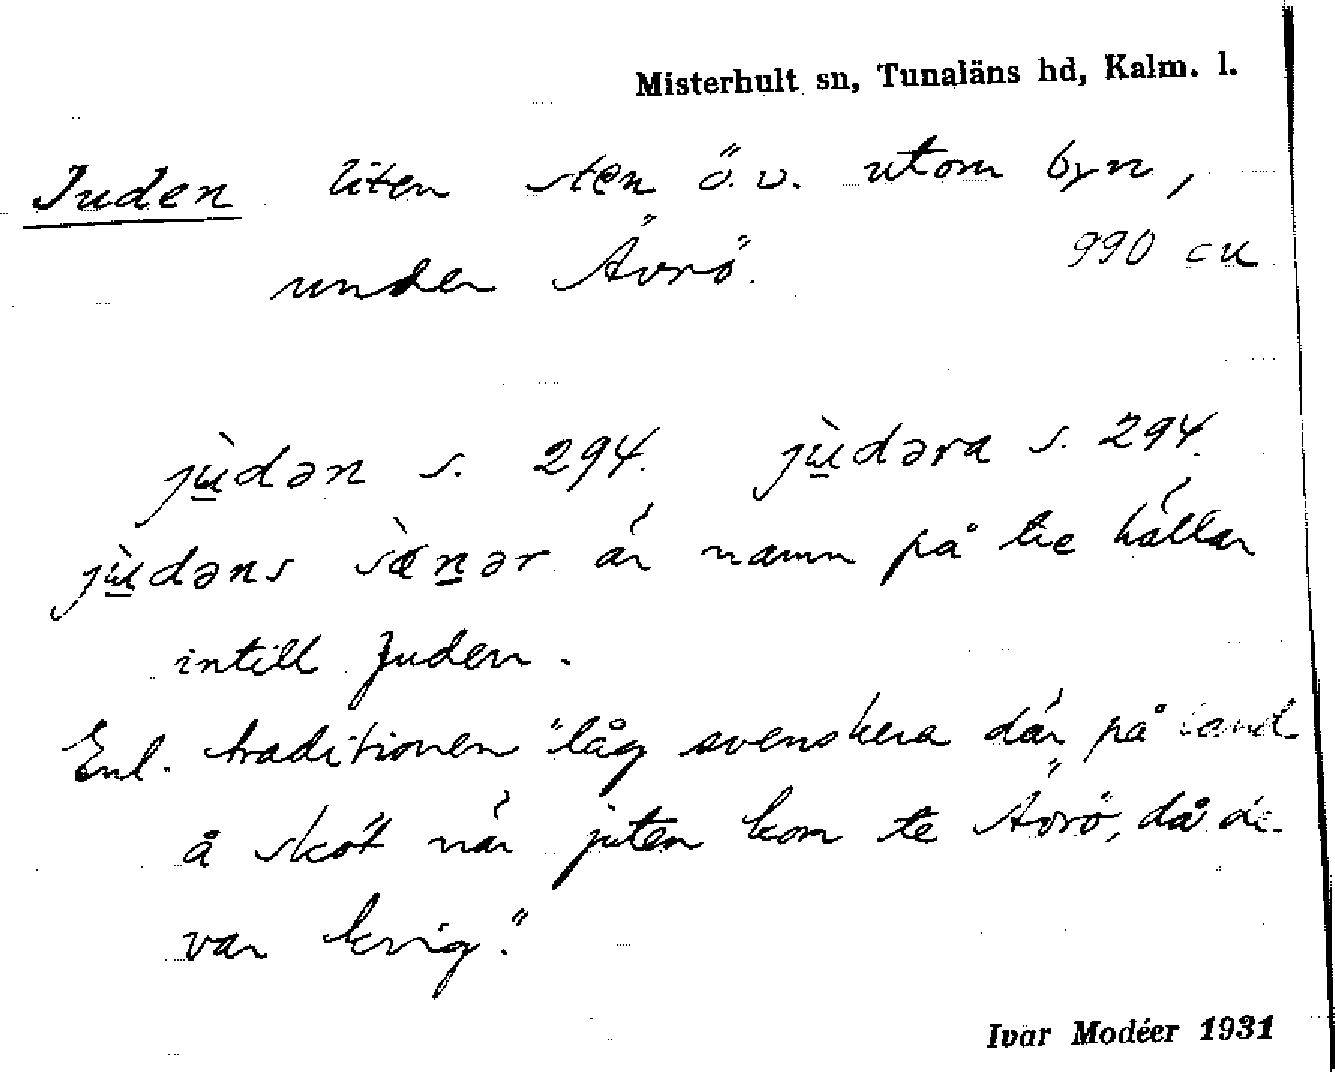 Misterhult sn, Tunaläns hd, Kalm. l.
Juden liten sten ö.v. utom byn,
under Ävrö. 990 cu
jùdən s. 294. jùdəra s. 294.
jùdəns sæ̀nər är namn på tre hällar
intill Juden.
Enl. traditionen "låg svenskera där på land
å sköt när juten kom te Ävrö, då de
var krig."
Ivar Modéer 1931